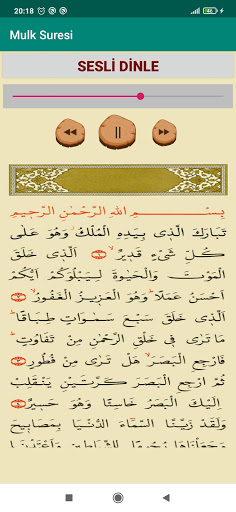 20:18
Mulk Suresi
SESLİ DİNLE
بِسْــــــمِ اللهِ الرَّحْمٰنِ الرَّحٖيمِ
تَبَارَكَ الَّذٖى بِيَدِهِ الْمُلْكُ وَهُوَ عَلٰى
كُلِّ شَیْءٍ قَدٖيرٌۙ ﴿١﴾ اَلَّذٖى خَلَقَ
الْمَوْتَ وَالْحَيٰوةَ لِيَبْلُوَكُمْ اَيُّكُمْ
اَحْسَنُ عَمَلاًۜ وَهُوَ الْعَزٖيزُ الْغَفُورُۙ ﴿٢﴾
اَلَّذٖى خَلَقَ سَبْعَ سَمٰوَاتٍ طِبَاقًاۜ
مَا تَرٰى فٖى خَلْقِ الرَّحْمٰنِ مِنْ تَفَاوُتٍۜ
فَارْجِعِ الْبَصَرَۙ هَلْ تَرٰى مِنْ فُطُورٍ ﴿٣﴾
ثُمَّ ارْجِعِ الْبَصَرَ كَرَّتَيْنِ يَنْقَلِبْ
اِلَيْكَ الْبَصَرُ خَاسِئًا وَهُوَ حَسٖيرٌ ﴿٤﴾
وَلَقَدْ زَيَّنَّا السَّمَٓاءَ الدُّنْيَا بِمَصَابٖيحَ
وَجَعَلْنَاهَا رُجُومًا لِلشَّيَاطٖينِ وَاَعْتَدْنَا